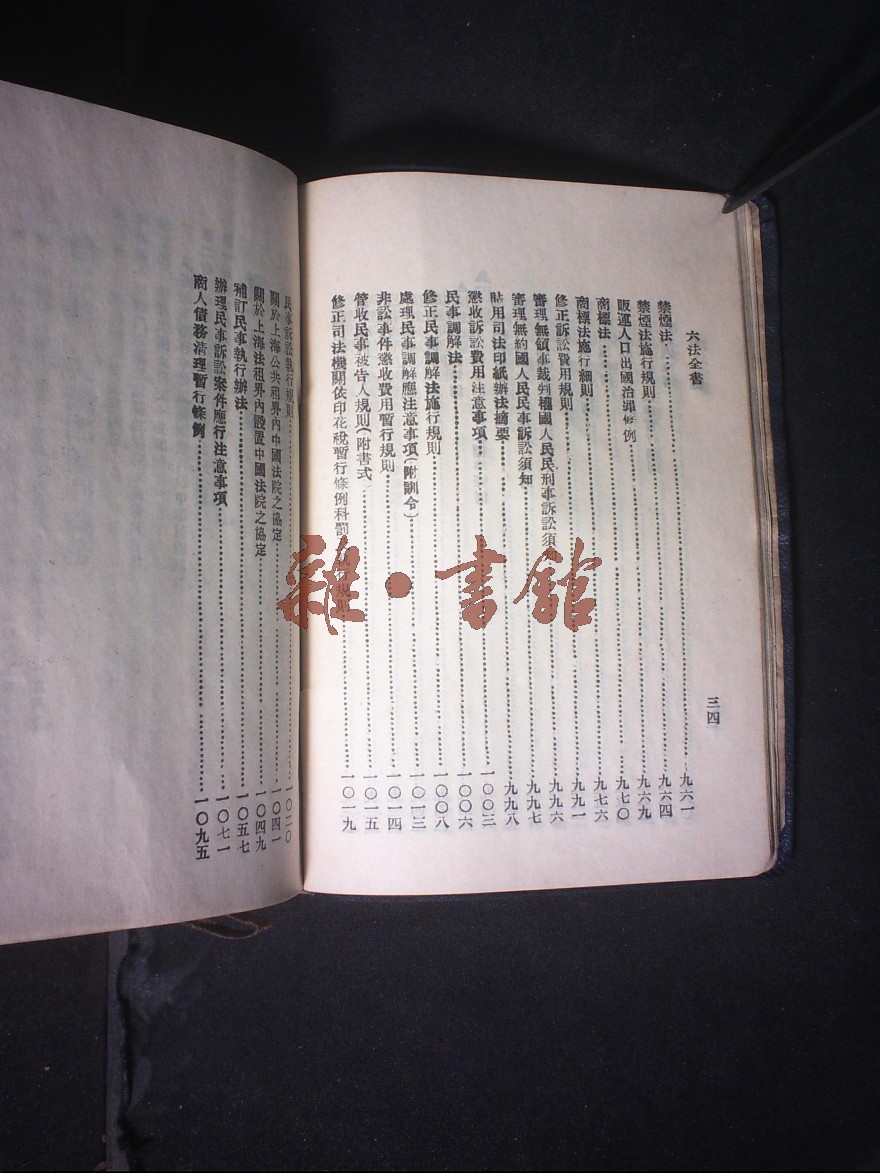 六法全書
三四
禁煙法……九六一
禁煙法施行規則……九六四
販運人口出國治罪條例……九六九
商標法……九七〇
商標法施行細則……九七六
修正訴訟費用規則……九九一
審理無領事裁判權國人民民刑事訴訟須知……九九六
審理無約國人民民事訴訟須知……九九七
貼用司法印紙辦法摘要……九九八
徵收訴訟費用注意事項……一〇〇三
民事調解法……一〇〇六
修正民事調解法施行規則……一〇〇八
處理民事調解應注意事項(附訓令)……一〇一三
非訟事件徵收費用暫行規則……一〇一四
管收民事被告人規則(附書式)……一〇一五
修正司法機關依印花稅暫行條例科罰執行規則……一〇一九
民事訴訟執行規則……一〇二〇
關於上海公共租界內中國法院之協定……一〇四一
關於上海法租界內設置中國法院之協定……一〇四九
補訂民事執行辦法……一〇五七
辦理民事訴訟案件應行注意事項……一〇七一
商人債務清理暫行條例……一〇九五
雜·書館